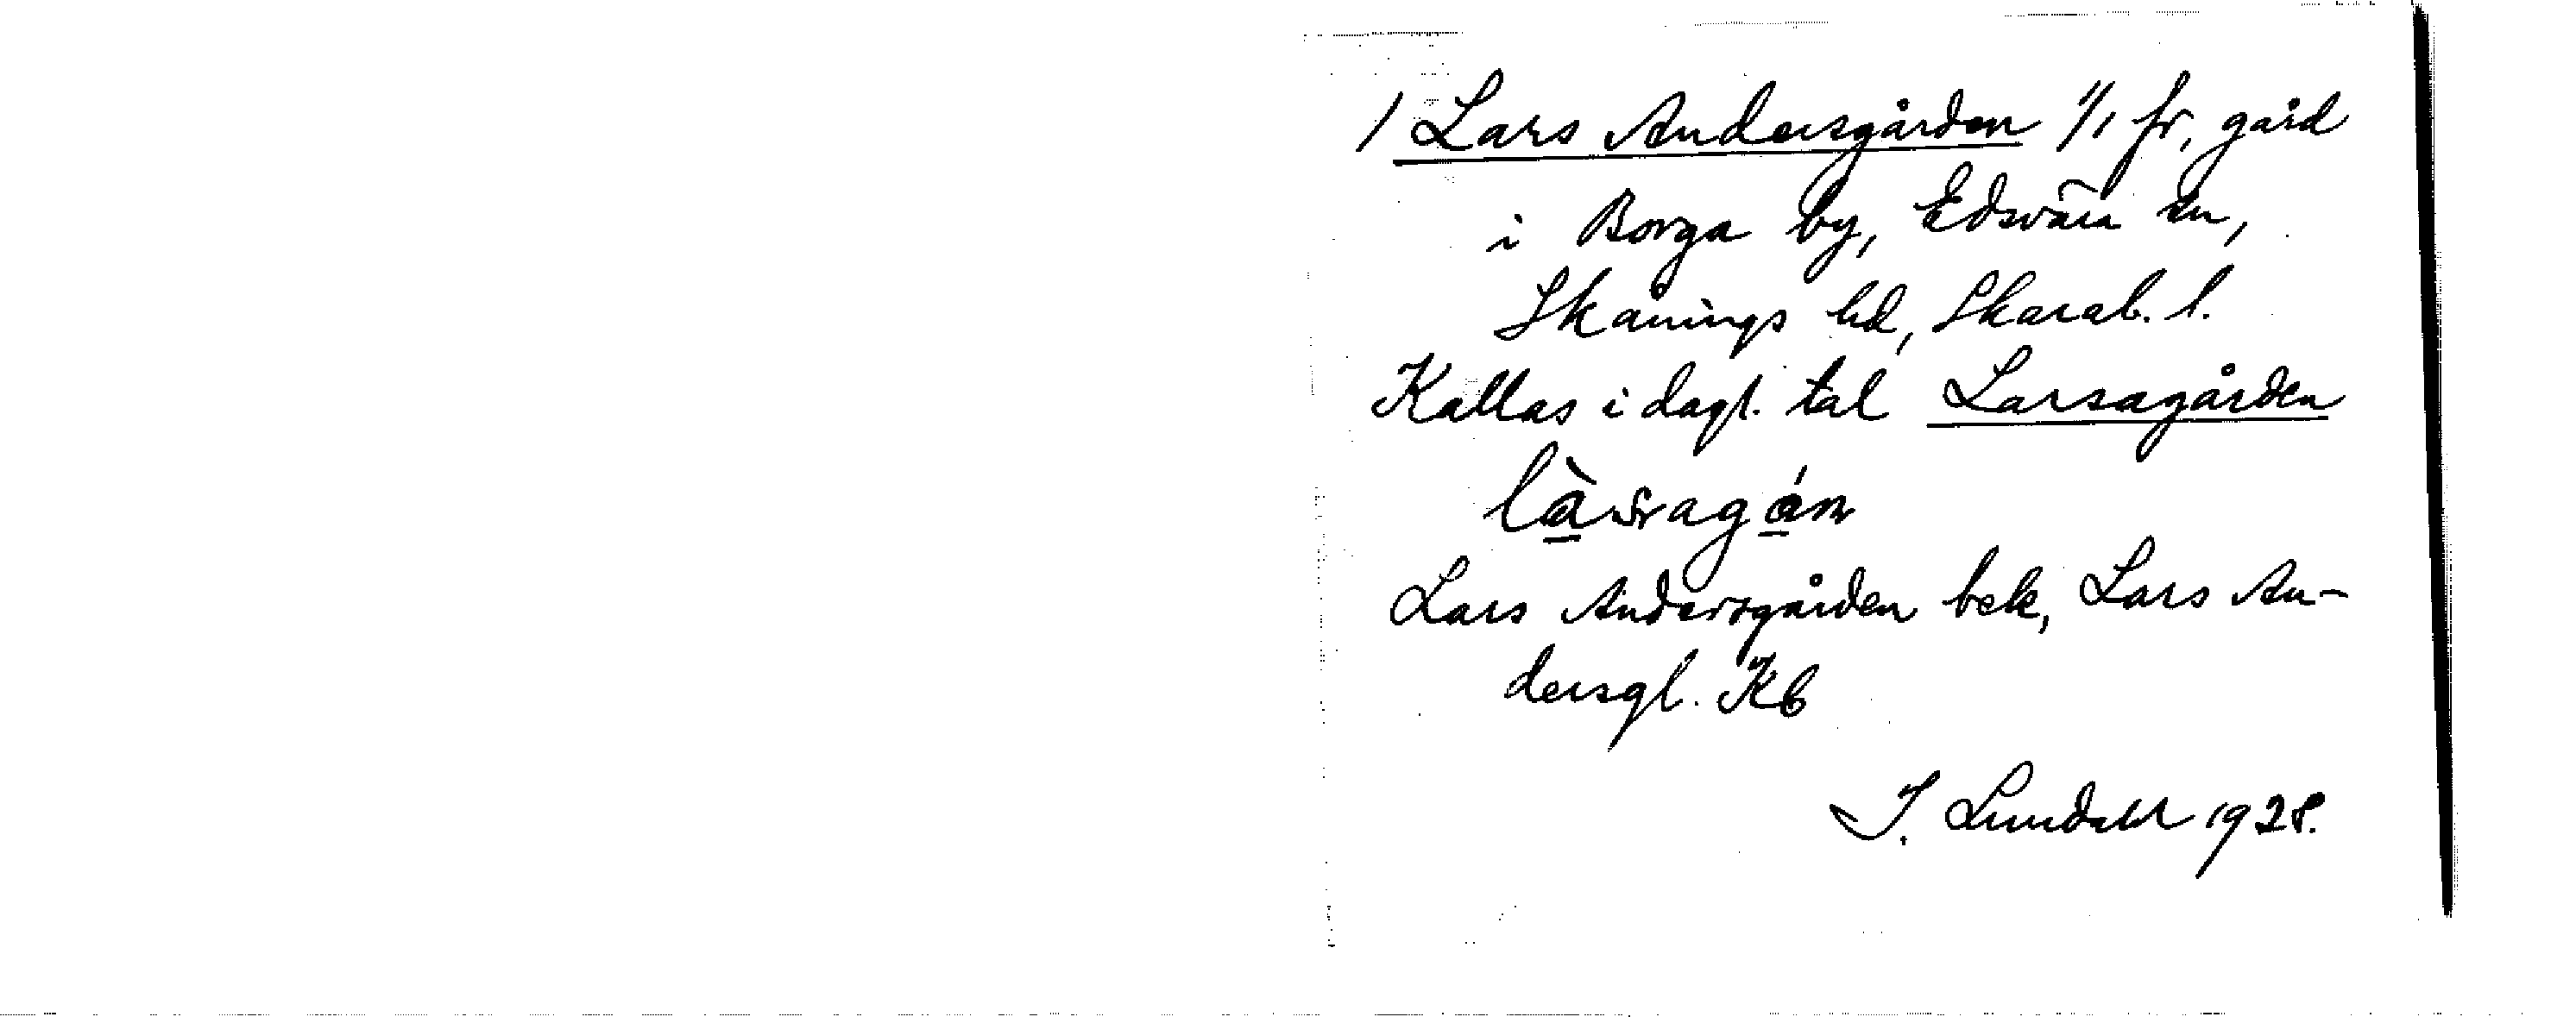 1 Lars Andersgården 1/1 fr, gård
i Borga by, Edsvära sn,
Skånings hd, Skarab. l.
Kallas i dagl. tal Larsagården
Lars Andersgården bek, Lars An-
dersgl. Kb
I. Lundahl 1928.